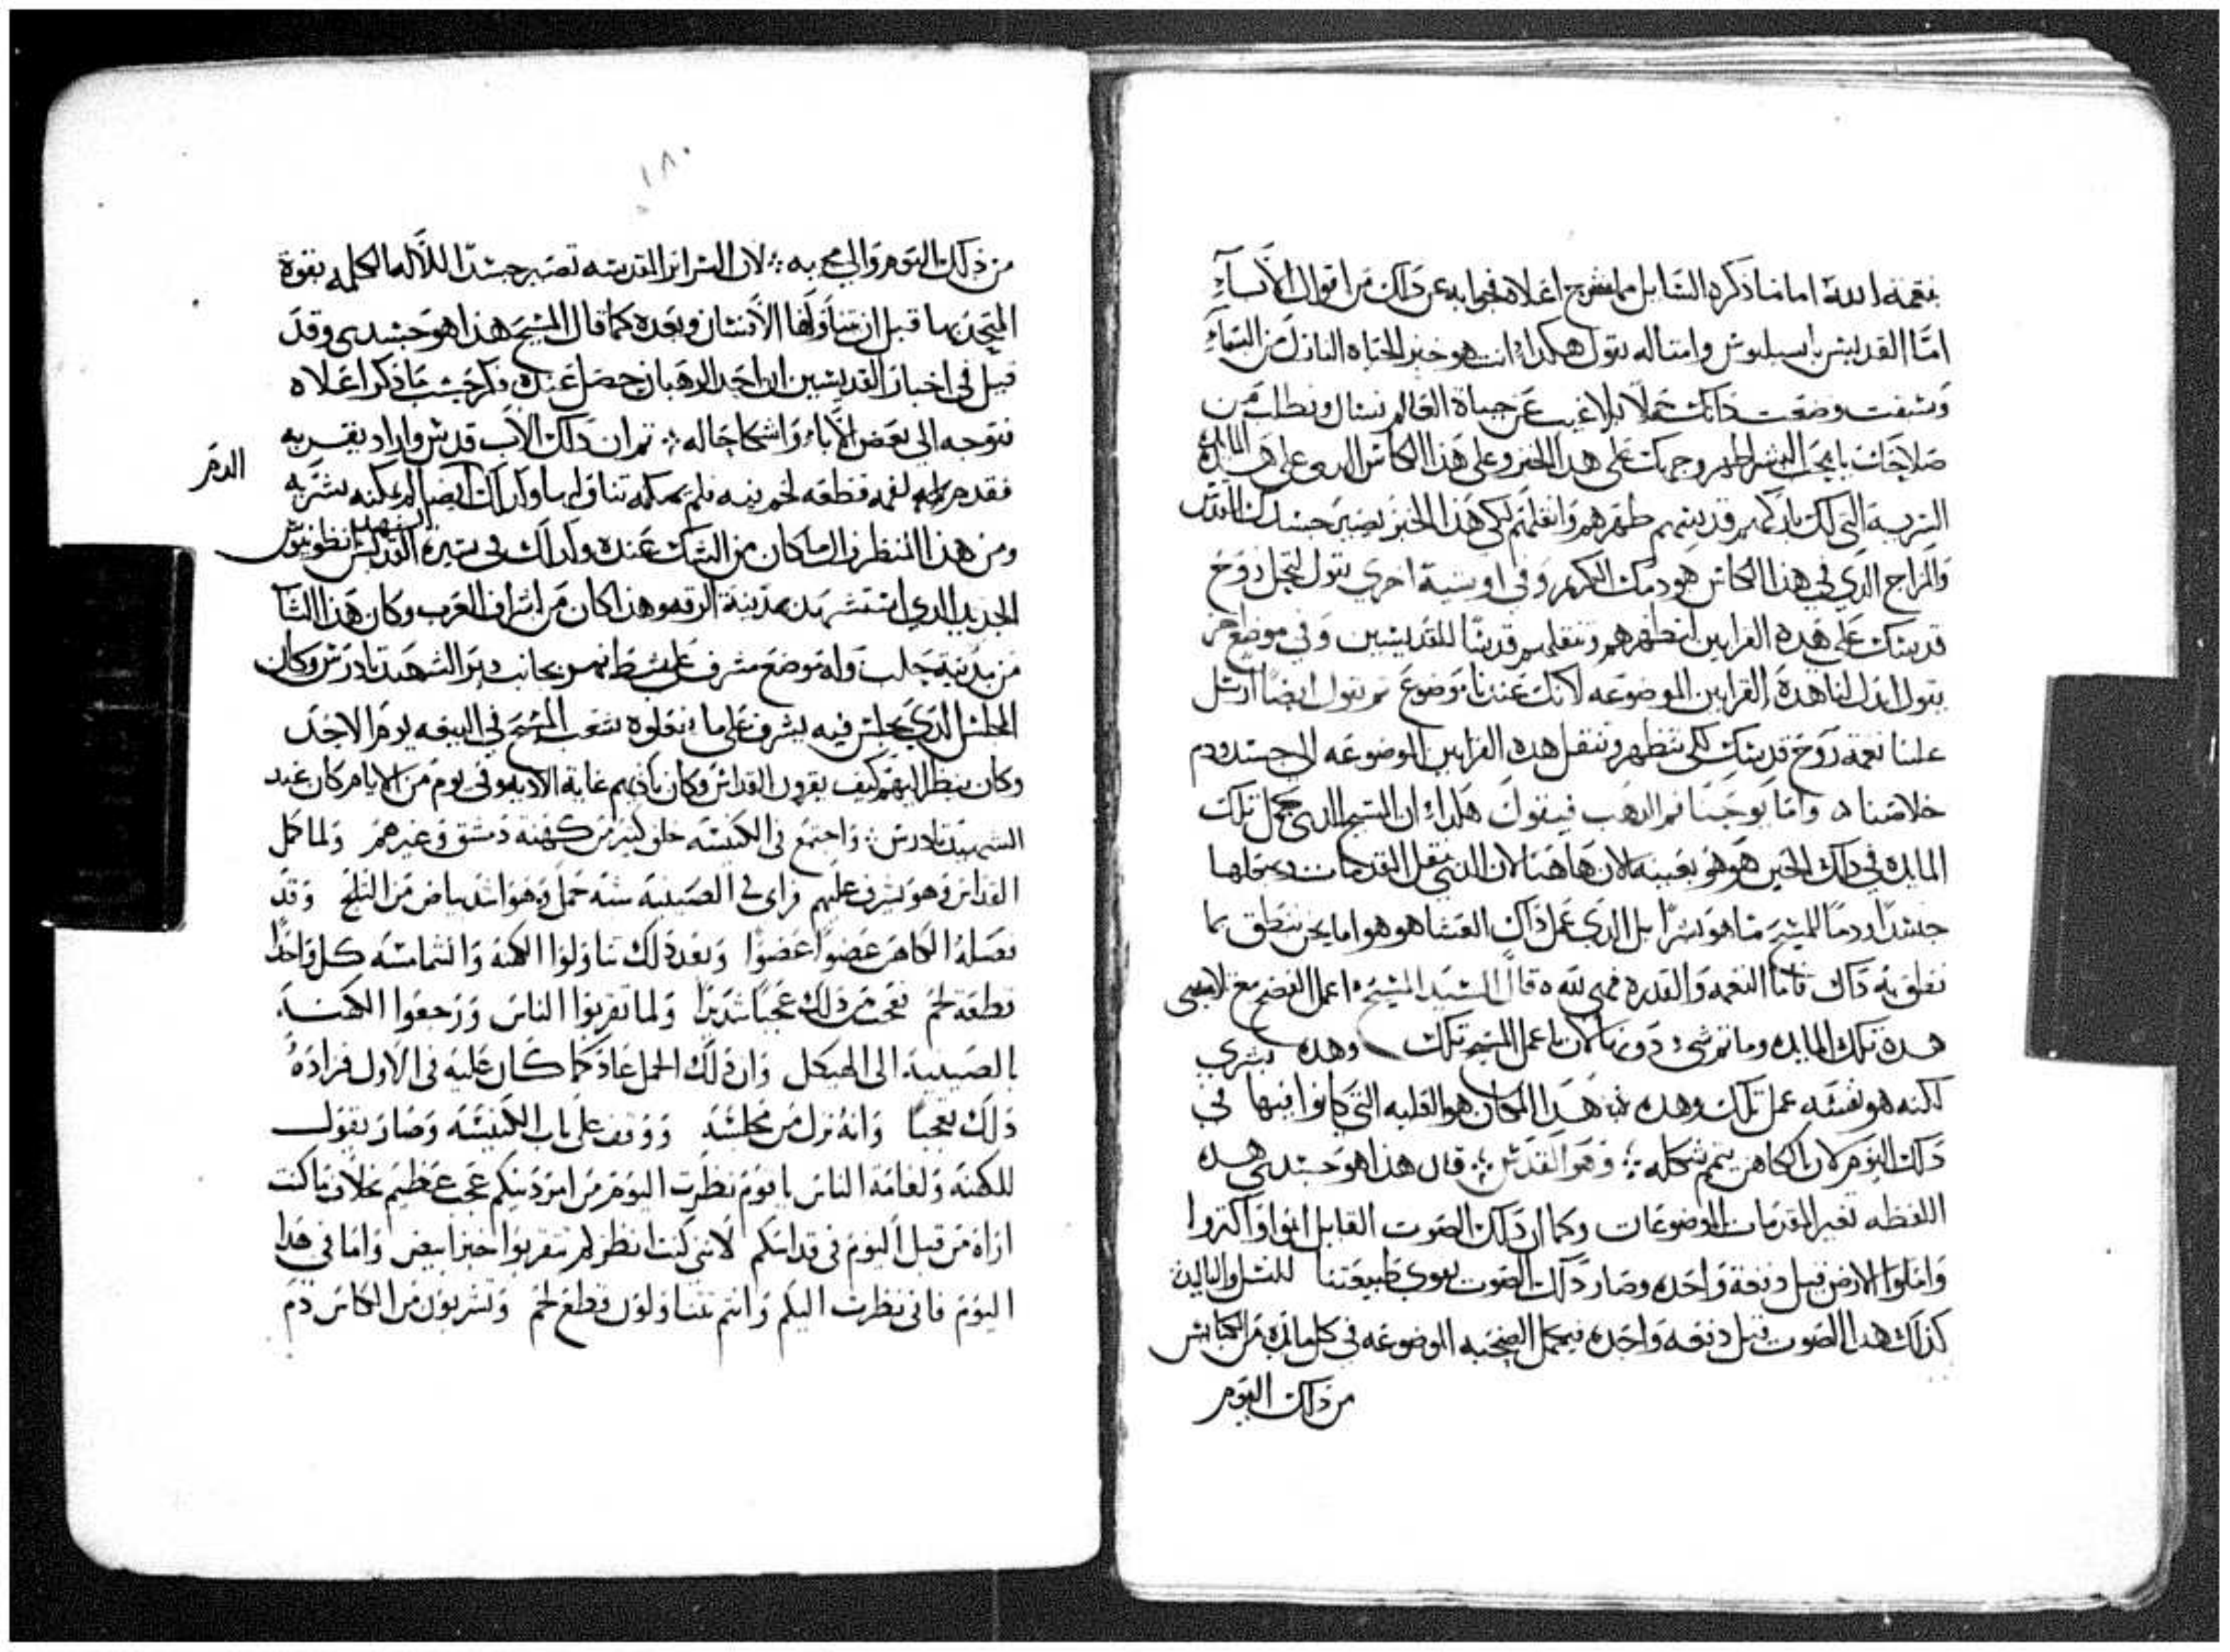 بنعمة الله اما ما ذكره السايل مما شرح اعلاه فجوابه عن ذلك من اقوال الأباء
امّا القديس باسيليوس وامتاله يقول هكذا انت هو خبز الحياه النازل من السماء
وسبقت وصنعت ذاتك حملاً بلا عيب عن حياة العالم نسال ونطلب من
صلاحك يا محب البشر اظهر وجهك على هذا الخبز وعلى هذا الكاس الدي على هذه المايده
باركهم قدسهم طهرهم وانقلهم لكي هذا الخبز يصير جسدك المقدس
والمزاج الذي في هذا الكاس هو دمك الكريم وفي اوشية اخرى يقول لتحل روح
قدسك على هذه القرابين لتطهرهم وتنقلهم قدسًا للقديسين وفي موضع اخر
يقول ابدل لنا هذه القرابين الموضوعه لانك عندنا موضوع ثم يقول ايضًا ارسل
علينا نعمة روح قدسك لكي تطهر وتنقل هذه القرابين الموضوعه الى جسد ودم
خلاصنا واما يوحنا فم الدهب فيقول هكدا ان المسيح الدي كمل تلك
المايده في ذلك الحين هو هو بعينه الان هاهنا لان الدي ينقل القدمات ويجعلها
جسدًا ودمًا للمسيح ما هو بشرًا بل الذي عمل ذاك العشا هو هو اما نحن ننطق بما
نطق به ذاك فاما النعمه والقدره فهي لله قال السيد المسيح اعمل الفصح مع تلاميدي
هده تلك المايده وما تم شيء دونها لان ما عمل المسيح تلك وهده بشري
لكنه هو نفسه عمل تلك وهده هذا المكان هو العليه التي كانوا فيها في
ذلك اليوم لان الكاهن يتمم شكله وهو القدس قال هذا هو جسدي هده
اللفظه تغير المقدمات الموضوعات وكما ان ذلك الصوت القايل انموا واكتروا
واملوا الارض قيل دفعة واحده وصار ذلك الصوت يقوي طبيعتنا للنسل والبالين
كذلك هدا الصوت قيل دفعه واحده فيكمل الضحيه الموضوعه في كل مايده من الكنايس
من ذلك اليوم
١٨٠
من ذلك اليوم والى مجيه لان السراير المقدسه تصير جسدًا للاله الكلمه بقوة
المتحد بها قبل ان يتناولها الأنسان وبعده كما قال المسيح هذا هو جسدي وقد
قيل في اخبار القديسين ان احد الرهبان حصل عنده فكر حسب ما ذكر اعلاه
فتوجه الى بعض الأباء واشكا حاله ثم ان ذلك الأب قدس واراد يقربه
فقدم له لقمه قطعة لحم فلم يمكنه تناولها وكذلك ايضا لم يمكنه يشربه
الدم
ومن هذا المنظر زال ما كان من الشك عنده وكذلك في سيرة الشهيد القديس انطونيوس
الجديد الدي استشهد بمدينة الرقه وهذا كان من اشراف العرب وكان هذا الشاب
من مدينة حلب وله موضع مشرف على شط نهر بجانب دير الشهيد تادرس وكان
المجلس الذي يجلس فيه يشرف على ما يفعلوه شعب المسيح في البيعه يوم الاحد
وكان ينظر اليهم كيف يقربون القداس وكان ياديهم غاية الاديه وفي يوم من الايام كان عيد
الشهيد تادرس واجتمع في الكنيسه خلق كتير من كهنة دمشق وغيرهم ولما كمل
القداس وهو يشرف عليهم فراى في الصينيه شبه حمل وهو اشد بياض من التلج وقد
فصله الكاهن عضوًا عضوًا وبعد ذلك تناولوا الكهنه والشمامسه كل واحدًا
قطعة لحم فعجب من ذلك عجبًا شديدًا ولما تقربوا الناس ورجعوا الكهنه
بالصينيه الى الهيكل وان ذلك الحمل عاد كما كان عليه في الاول فزاده
ذلك تعجبًا وانه نزل من مجلسه ووقف على باب الكنيسه وصار يقول
للكهنه ولعامة الناس يا قوم نظرت اليوم من امر دينكم عجب عظيم بخلاف ما كنت
اراه من قبل اليوم في قداسكم لانني كنت انظركم تتقربوا خبز ابيض واما في هدا
اليوم فاني نظرت اليكم وانتم تتناولون قطع لحم وتشربون من الكاس دم